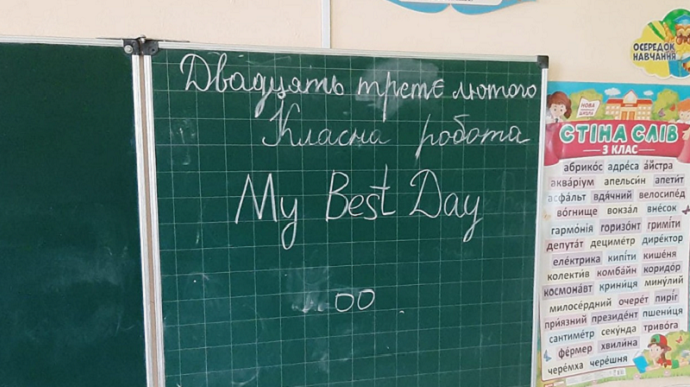 Двадцять третє лютого
Класна робота
My Best Day
ОСЕРЕДОК
НАВЧАННЯ
НОВА
СТІНА СЛІВ
3 КЛАС
абрико́с адре́са а́йстра
аква́ріум апельси́н апети́т
асфа́льт вдя́чний велосипе́д
во́гнище вокза́л вне́сок
гармо́нія горизо́нт гримі́ти
депута́т дециме́тр дире́ктор
еле́ктрика кипі́ти кише́ня
колекти́в комба́йн коридо́р
космона́вт крини́ця мину́лий
милосе́рдний очере́т пирі́г
прия́зний президе́нт пшени́ця
сантиме́тр секу́нда триво́га
фе́рмер хвили́на
чере́мха чере́шня